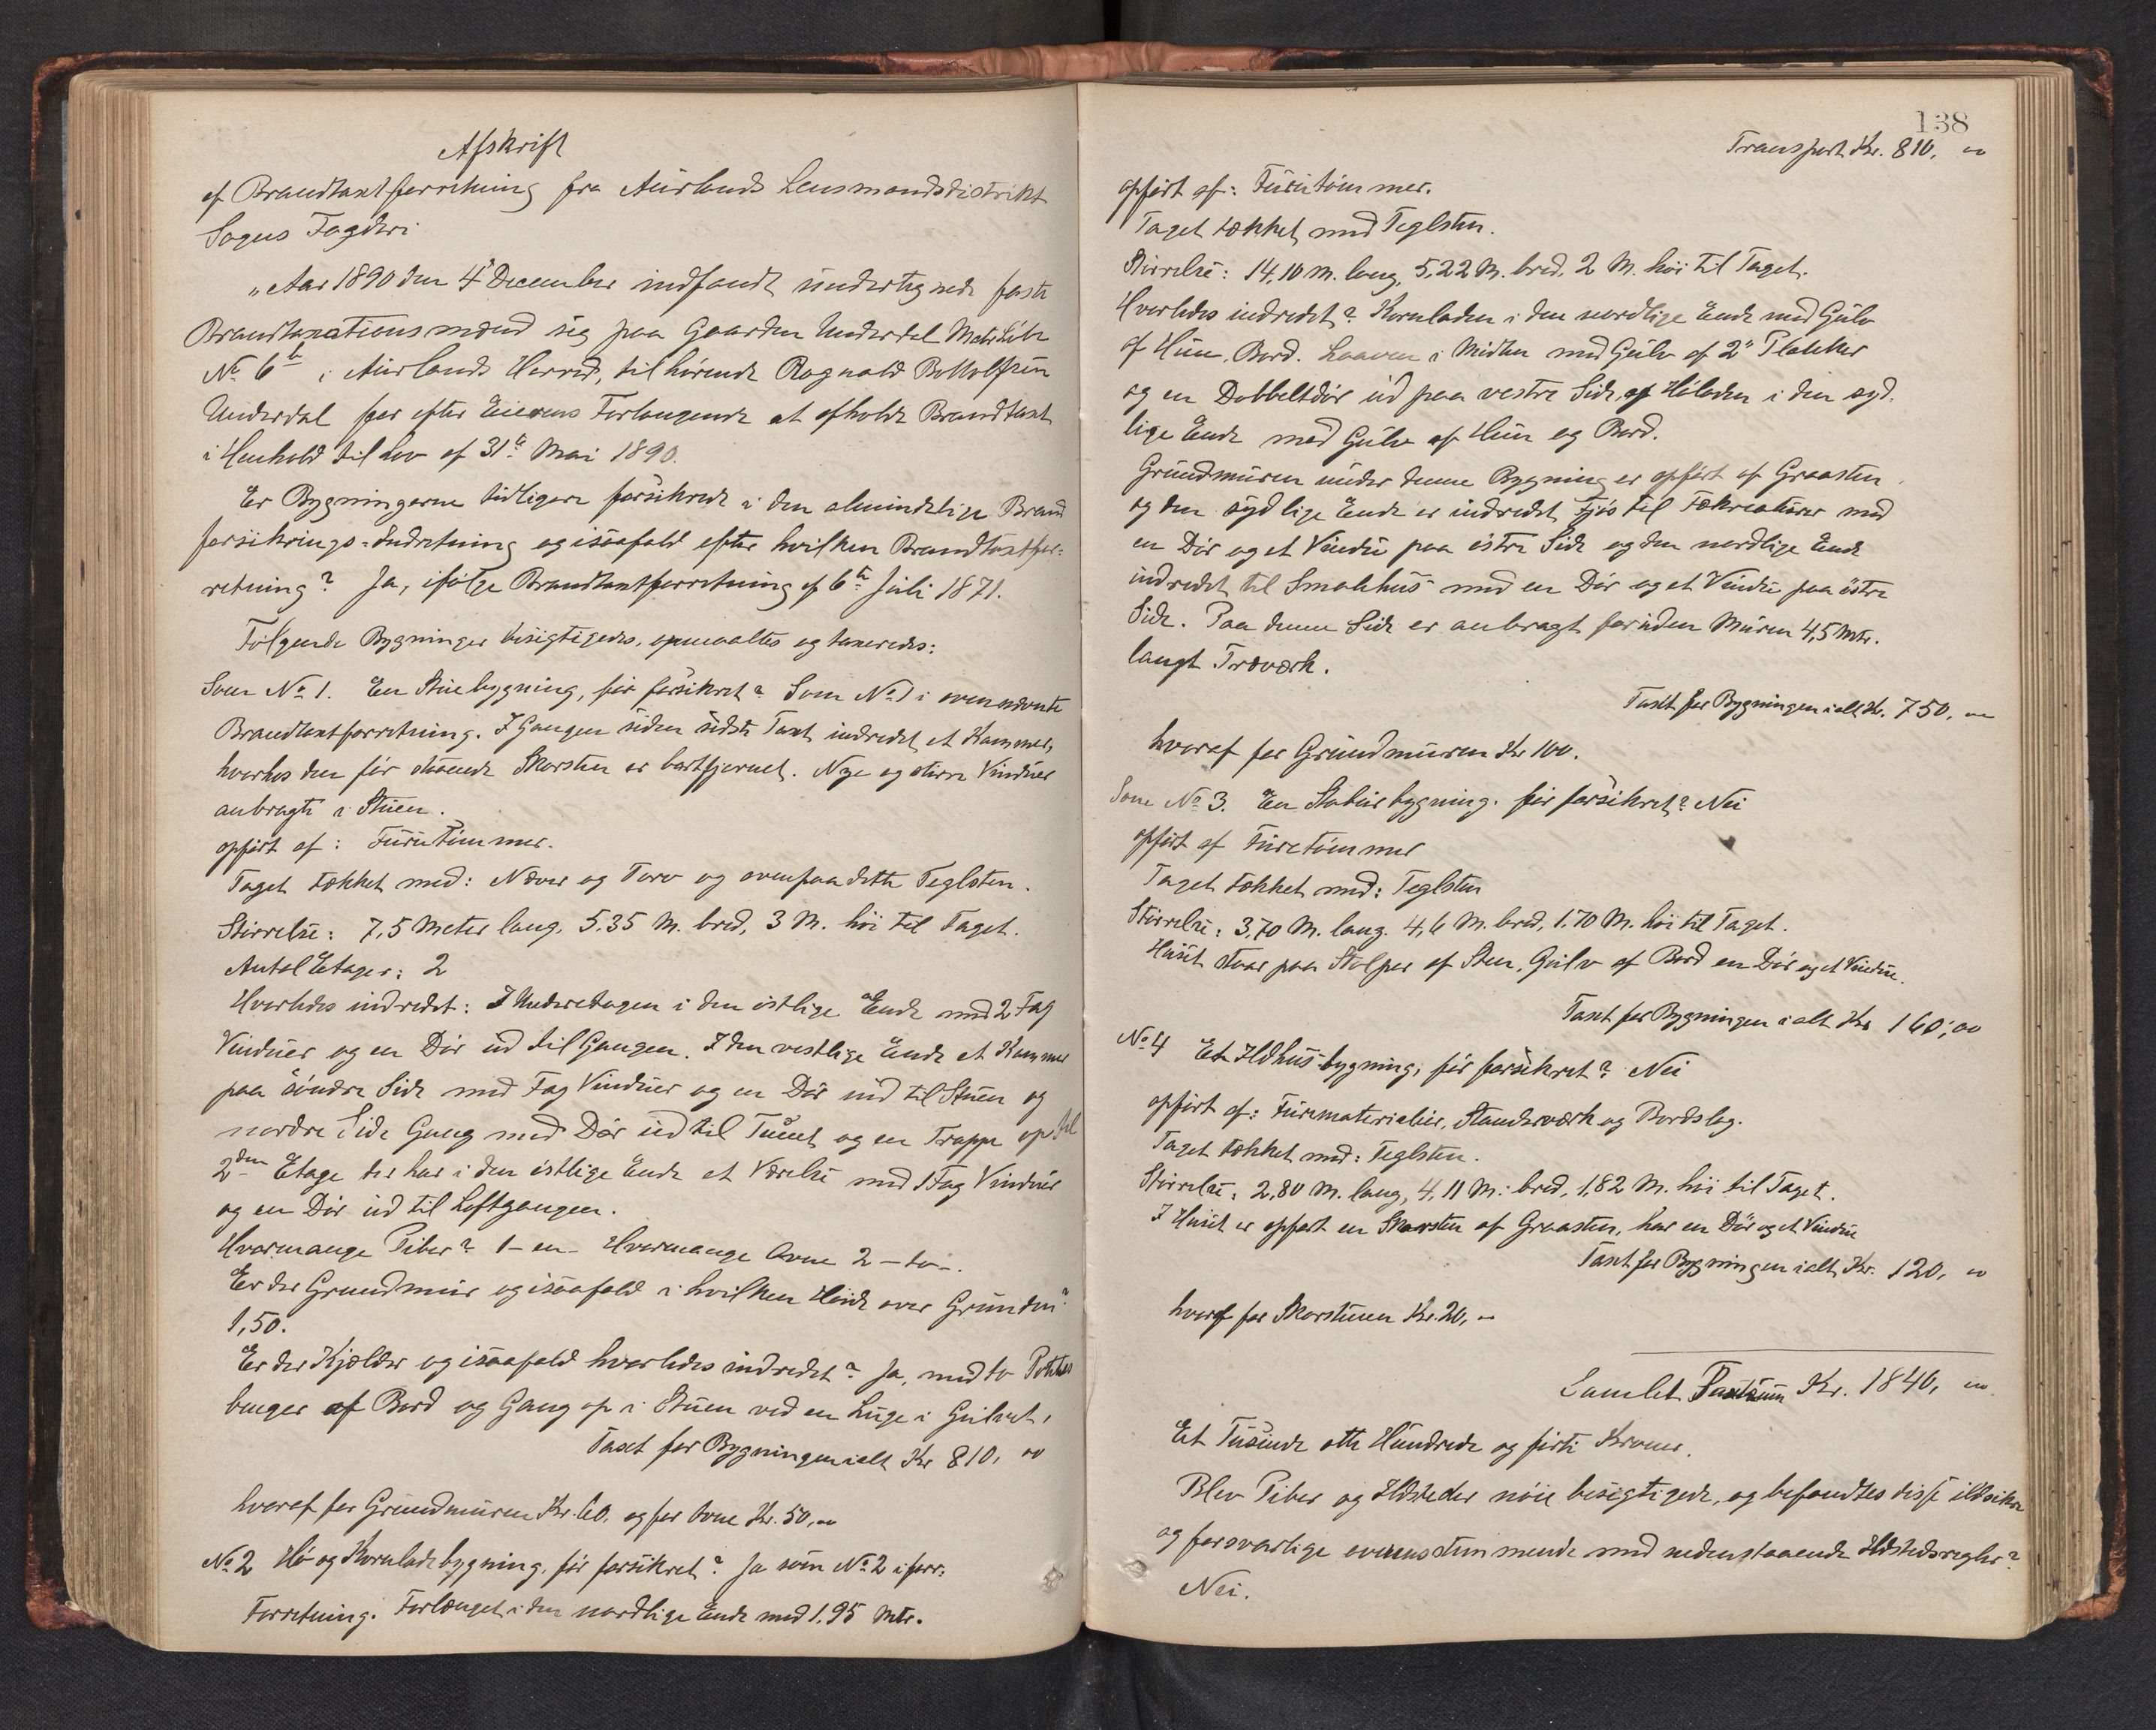 Afskrift
af Brandtaxtforretning fra Aurlands Lensmandsdistrikt
Sogns Fogderi
„Aar 1890 den 4 December indfandt undertegnede faste
Brandtaxationsmænd sig paa Gaarden Underdal Matr. Løbe
No 6 b i Aurlands Herred, tilhørende Ragnald Bottolfsen
Underdal for efter Eierens Forlangende at afholde Brandtaxt
i Henhold til Lov af 31te Mai 1890.
Er Bygningerne tidligere forsikrede i den almindelige Brand
forsikrings-Indretning og isaafald efter hvilken Brandtaxtfor-
retning? Ja, ifølge Brandtaxtforretning af 6te Juli 1871.
Følgende Bygninger besigtigedes, opmaaltes og taxeredes:
Som No 1. En Stuebygning, før forsikret? Som No 1 i ovennævnte
Brandtaxtforretning. I Gangen siden sidste Taxt indredet et Kammer,
hvorhos den før staaende Skorsten er bortfjernet. Nye og større Vinduer
anbragte i Stuen.
opført af: Furutømmer.
Taget tækket med: Næver og Torv og ovenpaa dette Teglsten.
Størrelse: 7,5 Meter lang, 5,35 M. bred, 3 M. høi til Taget.
Antal Etager: 2
Hvorledes indredet: I Underetagen i den østlige Ende med 2 Fag
Vinduer og en Dør ud til Gangen. I den vestlige Ende et Kammer
paa søndre Side med Fag Vinduer og en Dør ind til Stuen og
nordre Side Gang med Dør ud til Tunet og en Trappe op til
2den Etage der har i den østlige Ende et Værelse med 1 Fag Vinduer
og en Dør ud til Loftgangen.
Hvormange Piber? 1 – en – Hvormange Ovne 2 – to –.
Er der Grundmur og isaafald i hvilken Høide over Grunden?
1,50.
Er der Kjælder og isaafald hvorledes indredet? Ja, med to Potet
binger af Bord og Gang op i Stuen ved en Luge i Gulvet,
Taxt for Bygningen ialt Kr 810, 00
hvoraf for Grundmuren Kr. 60, og for Ovne Kr. 50,00
No 2 Hø og Kornladebygning, før forsikret? Ja som No 2 i forr:
Forretning. Forlænget i den nordlige Ende med 1,95 Mtr.
138
Transport Kr. 810, 00
opført af: Furutømmer.
Taget tækket med Teglsten.
Størrelse: 14,10 M. lang, 5,22 M. bred, 2 M. høi til Taget.
Hvorledes indredet? Kornladen i den nordlige Ende med Gulv
af Hun. Bord. Laaven i Midten med Gulv af 2" Planker
og en Dobbeltdør ud paa vestre Side, og Høladen i den syd-
lige Ende med Gulv af Hun og Bord.
Grundmuren under denne Bygning er opført af Graasten,
og den sydlige Ende er indredet Fjøs til Fækreaturer med
en Dør og et Vindu paa østre Side og den nordlige Ende
indredet til Smalehus med en Dør og et Vindu paa østre
Side. Paa denne Side er anbragt foruden Muren 4,5 Mtr.
langt Træværk.
Taxt for Bygningen ialt Kr. 750, 00
hvoraf for Grundmuren Kr 100.
Som No 3. En Stabursbygning, før forsikret? Nei
opført af Furutømmer
Taget tækket med: Teglsten
Størrelse: 3,70 M. lang. 4,6 M. bred, 1.70 M. høi til Taget.
Huset staar paa Stolper af Sten, Gulv af Bord en Dør og et Vindue.
Taxt for Bygningen ialt Kr 160,00
No 4 Et Ildhus-bygning, før forsikret? Nei
opført af: Furumaterialier, Standerværk og Bordslag.
Taget tækket med: Teglsten.
Størrelse: 2,80 M. lang, 4,11 M. bred, 1,82 M. høi til Taget.
I Huset er opført en Skorsten af Graasten, har en Dør og et Vindue
Taxt for Bygningen ialt Kr. 120, 00
hvoraf for Skorstenen Kr. 20, 00
Samlet Taxtsum Kr. 1840, 00
Et Tusinde otte Hundrede og førti Kroner.
Blev Piber og Ildsteder nøie besigtigede, og befandtes disse ildsikre
og forsvarlige overensstemmende med nedenstaaende Ildstedsregler?
Nei.